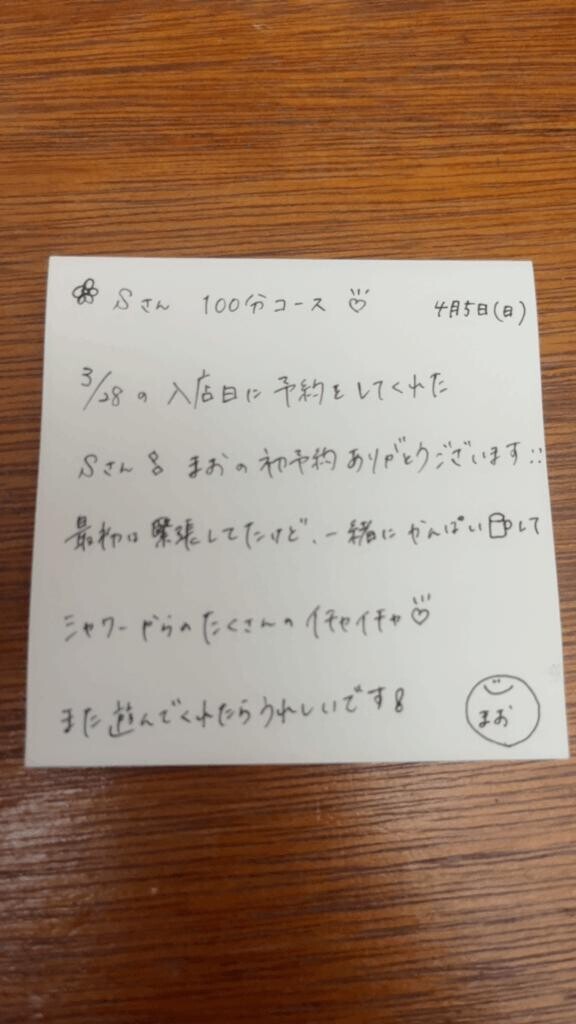 Sさん 100分コース♡ 4月5日(日)
3/28の入店日に予約をしてくれた
Sさん! まおの初予約ありがとうございます!!
最初は緊張してたけど、一緒にかんぱい🍺して
シャワーからのたくさんのイチャイチャ♡
また遊んでくれたらうれしいです!
まお